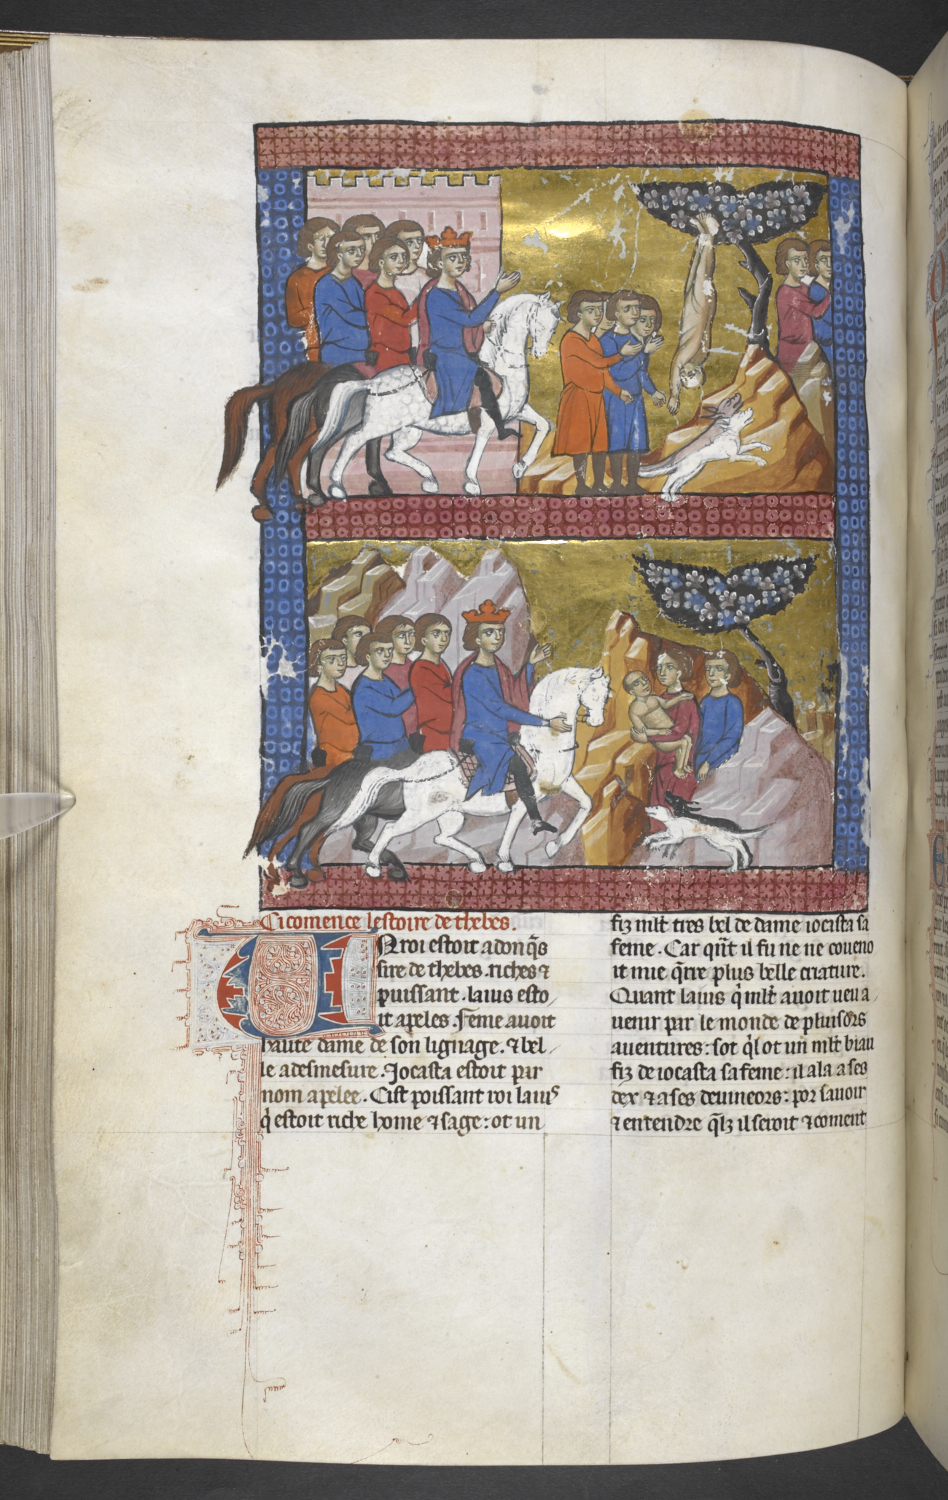 Ci comence lestoire de thebes.
Un roi estoit adonq̄s
sire de thebes. riches ⁊
puissant. laius esto-
it apeles. feme auoit
haute dame de son lignage. ⁊ bel-
le a desmesure. Jocasta estoit par
nom apelee. Cist poissant roi laiꝰ
q̇ estoit riche home ⁊ sage: ot un
fiz ml̄t tres bel de dame iocasta sa
feme. Car qn̄t il fu ne ne coueno
it mie q̄rre plus belle criature.
Quant laius q̇ ml̄t auoit ueu a-
uenir par le monde de pluisors
auentures: sot q̇l ot un ml̄t biau
fiz de iocasta sa feme: il ala a ses
dex ⁊ a ses deuineors: por sauoir
⁊ entendre q̄lz il seroit ⁊ coment